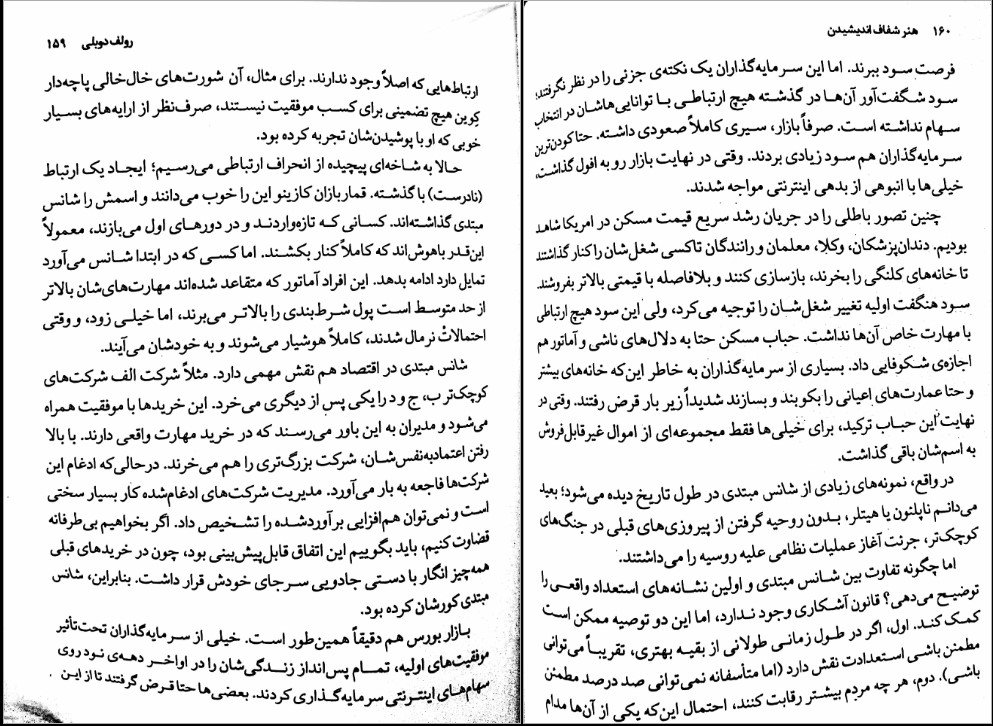 رولف دوبلی ۱۵۹
ارتباط‌هایی که اصلاً وجود ندارند. برای مثال، آن شورت‌های خال‌خالی پاچه‌دار
کِوین هیچ تضمینی برای کسب موفقیت نیستند، صرف‌نظر از ارایه‌های بسیار
خوبی که او با پوشیدن‌شان تجربه کرده بود.
حالا به شاخه‌ای پیچیده از انحراف ارتباطی می‌رسیم؛ ایجاد یک ارتباط
(نادرست) با گذشته. قماربازان کازینو این را خوب می‌دانند و اسمش را شانس
مبتدی گذاشته‌اند. کسانی که تازه‌واردند و در دورهای اول می‌بازند، معمولاً
این‌قدر باهوش‌اند که کاملاً کنار بکشند. اما کسی که در ابتدا شانس می‌آورد
تمایل دارد ادامه بدهد. این افراد آماتور که متقاعد شده‌اند مهارت‌های‌شان بالاتر
از حد متوسط است پول شرط‌بندی را بالاتر می‌برند، اما خیلی زود، و وقتی
احتمالاتْ نرمال شدند، کاملاً هوشیار می‌شوند و به خودشان می‌آیند.
شانس مبتدی در اقتصاد هم نقش مهمی دارد. مثلاً شرکت الف شرکت‌های
کوچک‌تر ب، ج و د را یکی پس از دیگری می‌خرد. این خریدها با موفقیت همراه
می‌شود و مدیران به این باور می‌رسند که در خرید مهارت واقعی دارند. با بالا
رفتن اعتمادبه‌نفس‌شان، شرکت بزرگ‌تری را هم می‌خرند. درحالی‌که ادغام این
شرکت‌ها فاجعه به بار می‌آورد. مدیریت شرکت‌های ادغام‌شده کار بسیار سختی
است و نمی‌توان هم‌افزایی برآوردشده را تشخیص داد. اگر بخواهیم بی‌طرفانه
قضاوت کنیم، باید بگوییم این اتفاق قابل‌پیش‌بینی بود، چون در خریدهای قبلی
همه‌چیز انگار با دستی جادویی سرجای خودش قرار داشت. بنابراین، شانس
مبتدی کورشان کرده بود.
بازار بورس هم دقیقاً همین‌طور است. خیلی از سرمایه‌گذاران تحت‌تأثیر
موفقیت‌های اولیه، تمام پس‌انداز زندگی‌شان را در اواخر دهه‌ی نود روی
سهام‌های اینترنتی سرمایه‌گذاری کردند. بعضی‌ها حتا قرض گرفتند تا از این
۱۶۰ هنر شفاف اندیشیدن
فرصت سود ببرند. اما این سرمایه‌گذاران یک نکته‌ی جزئی را در نظر نگرفتند؛
سود شگفت‌آور آن‌ها در گذشته هیچ ارتباطی با توانایی‌هاشان در انتخاب
سهام نداشته است. صرفاً بازار، سیری کاملاً صعودی داشته. حتا کودن‌ترین
سرمایه‌گذاران هم سود زیادی بردند. وقتی در نهایت بازار رو به افول گذاشت،
خیلی‌ها با انبوهی از بدهی اینترنتی مواجه شدند.
چنین تصور باطلی را در جریان رشد سریع قیمت مسکن در امریکا شاهد
بودیم. دندان‌پزشکان، وکلا، معلمان و رانندگان تاکسی شغل‌شان را کنار گذاشتند
تا خانه‌های کلنگی را بخرند، بازسازی کنند و بلافاصله با قیمتی بالاتر بفروشند.
سود هنگفت اولیه تغییر شغل‌شان را توجیه می‌کرد، ولی این سود هیچ ارتباطی
با مهارت خاص آن‌ها نداشت. حباب مسکن حتا به دلال‌های ناشی و آماتور هم
اجازه‌ی شکوفایی داد. بسیاری از سرمایه‌گذاران به خاطر این‌که خانه‌های بیشتر
و حتا عمارت‌های اعیانی را بکوبند و بسازند شدیداً زیر بار قرض رفتند. وقتی در
نهایت این حباب ترکید، برای خیلی‌ها فقط مجموعه‌ای از اموال غیرقابل‌فروش
به اسم‌شان باقی گذاشت.
در واقع، نمونه‌های زیادی از شانس مبتدی در طول تاریخ دیده می‌شود؛ بعید
می‌دانم ناپلئون یا هیتلر، بدون روحیه گرفتن از پیروزی‌های قبلی در جنگ‌های
کوچک‌تر، جرئت آغاز عملیات نظامی علیه روسیه را می‌داشتند.
اما چگونه تفاوت بین شانس مبتدی و اولین نشانه‌های استعداد واقعی را
توضیح می‌دهی؟ قانون آشکاری وجود ندارد، اما این دو توصیه ممکن است
کمک کند. اول، اگر در طول زمانی طولانی از بقیه بهتری، تقریباً می‌توانی
مطمئن باشی استعدادت نقش دارد (اما متأسفانه نمی‌توانی صد درصد مطمئن
باشی). دوم، هر چه مردم بیشتر رقابت کنند، احتمال این‌که یکی از آن‌ها مدام